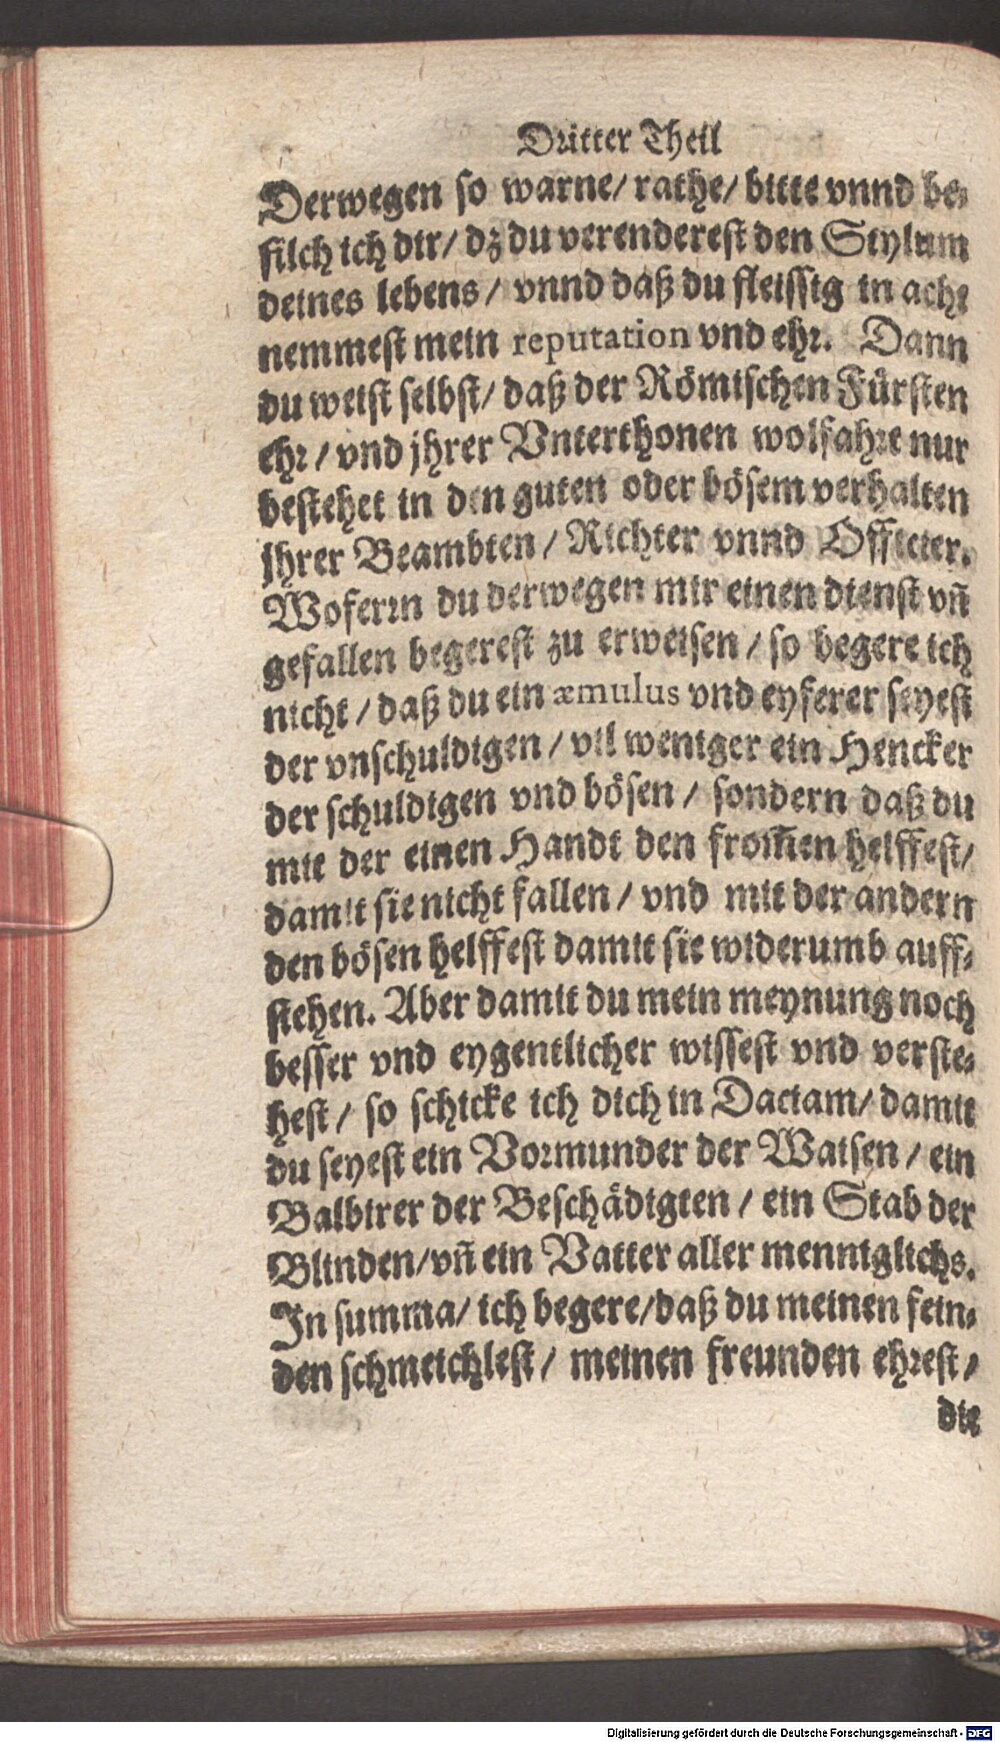 Dritter Theil
Derwegen so warne/ rathe/ bitte vnnd be-
filch ich dir/ dz du verenderest den Stylum
deines lebens/ vnnd daß du fleissig in acht
nemmest mein reputation vnd ehr. Dann
du weist selbst/ daß der Römischen Fürsten
ehr/ vnd jhrer Vnterthonen wolfahrt nur
bestehet in den guten oder bösem verhalten
jhrer Beambten/ Richter vnnd Officier.
Woferrn du derwegen mir einen dienst vñ
gefallen begerest zu erweisen/ so begere ich
nicht/ daß du ein æmulus vnd eyferer seyest
der vnschuldigen/ vil weniger ein Hencker
der schuldigen vnd bösen/ sondern daß du
mit der einen Handt den from̃en helffest/
damit sie nicht fallen/ vnd mit der andern
den bösen helffest damit sie widerumb auff-
stehen. Aber damit du mein meynung noch
besser vnd eygentlicher wissest vnd verste-
hest/ so schicke ich dich in Daciam/ damit
du seyest ein Vormunder der Waisen/ ein
Balbirer der Beschädigten/ ein Stab der
Blinden/ vñ ein Vatter aller menniglichs.
In summa/ ich begere/ daß du meinen fein-
den schmeichlest/ meinen freunden ehrest/
die
Digitalisierung gefördert durch die Deutsche Forschungsgemeinschaft - DFG